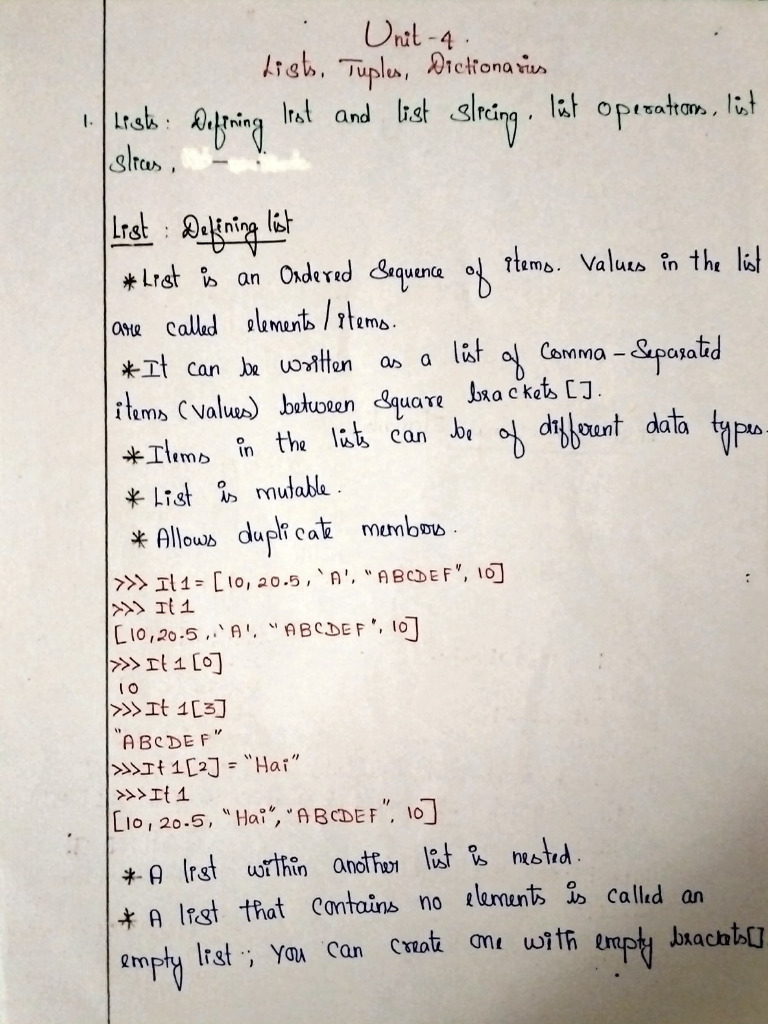 Unit-4.
Lists, Tuples, Dictionaries
1. Lists: Defining list and list slicing, list operations, list
slices,
List : Defining list
*List is an Ordered Sequence of items. Values in the list
are called elements/items.
*It can be written as a list of Comma-Separated
items (values) between Square brackets [].
*Items in the lists can be of different data types.
* List is mutable.
* Allows duplicate members.
>>> It1 = [10, 20.5, 'A', "ABCDEF", 10]
>>> It1
[10,20.5, 'A', "ABCDEF", 10]
>>> It1[0]
10
>>> It1[3]
"ABCDEF"
>>> It1[2] = "Hai"
>>> It1
[10, 20.5, "Hai", "ABCDEF", 10]
* A list within another list is nested.
* A list that contains no elements is called an
empty list; you can create one with empty brackets[]